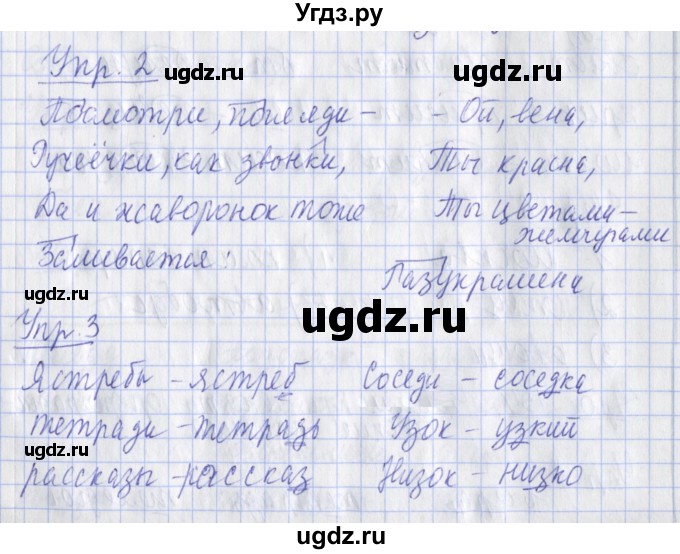 Угдз.ру
Упр. 2
Посмотри, погляди –
Ручеёчки, как звонки,
Да и жаворонок тоже
Заливается:
- Ой, вена,
Ты красна,
Ты цветами –
жемчугами
Разукрашена
Упр. 3
Ястребы – ястреб
тетради – тетрадь
рассказы – рассказ
Соседи – соседка
Узок – узкий
Низок – низко
ugdz.ru
ugdz.ru
ugdz.ru
ugdz.ru
ugdz.ru
ugdz.ru
ugdz.ru
ugdz.ru
ugdz.ru
Угдз.ру